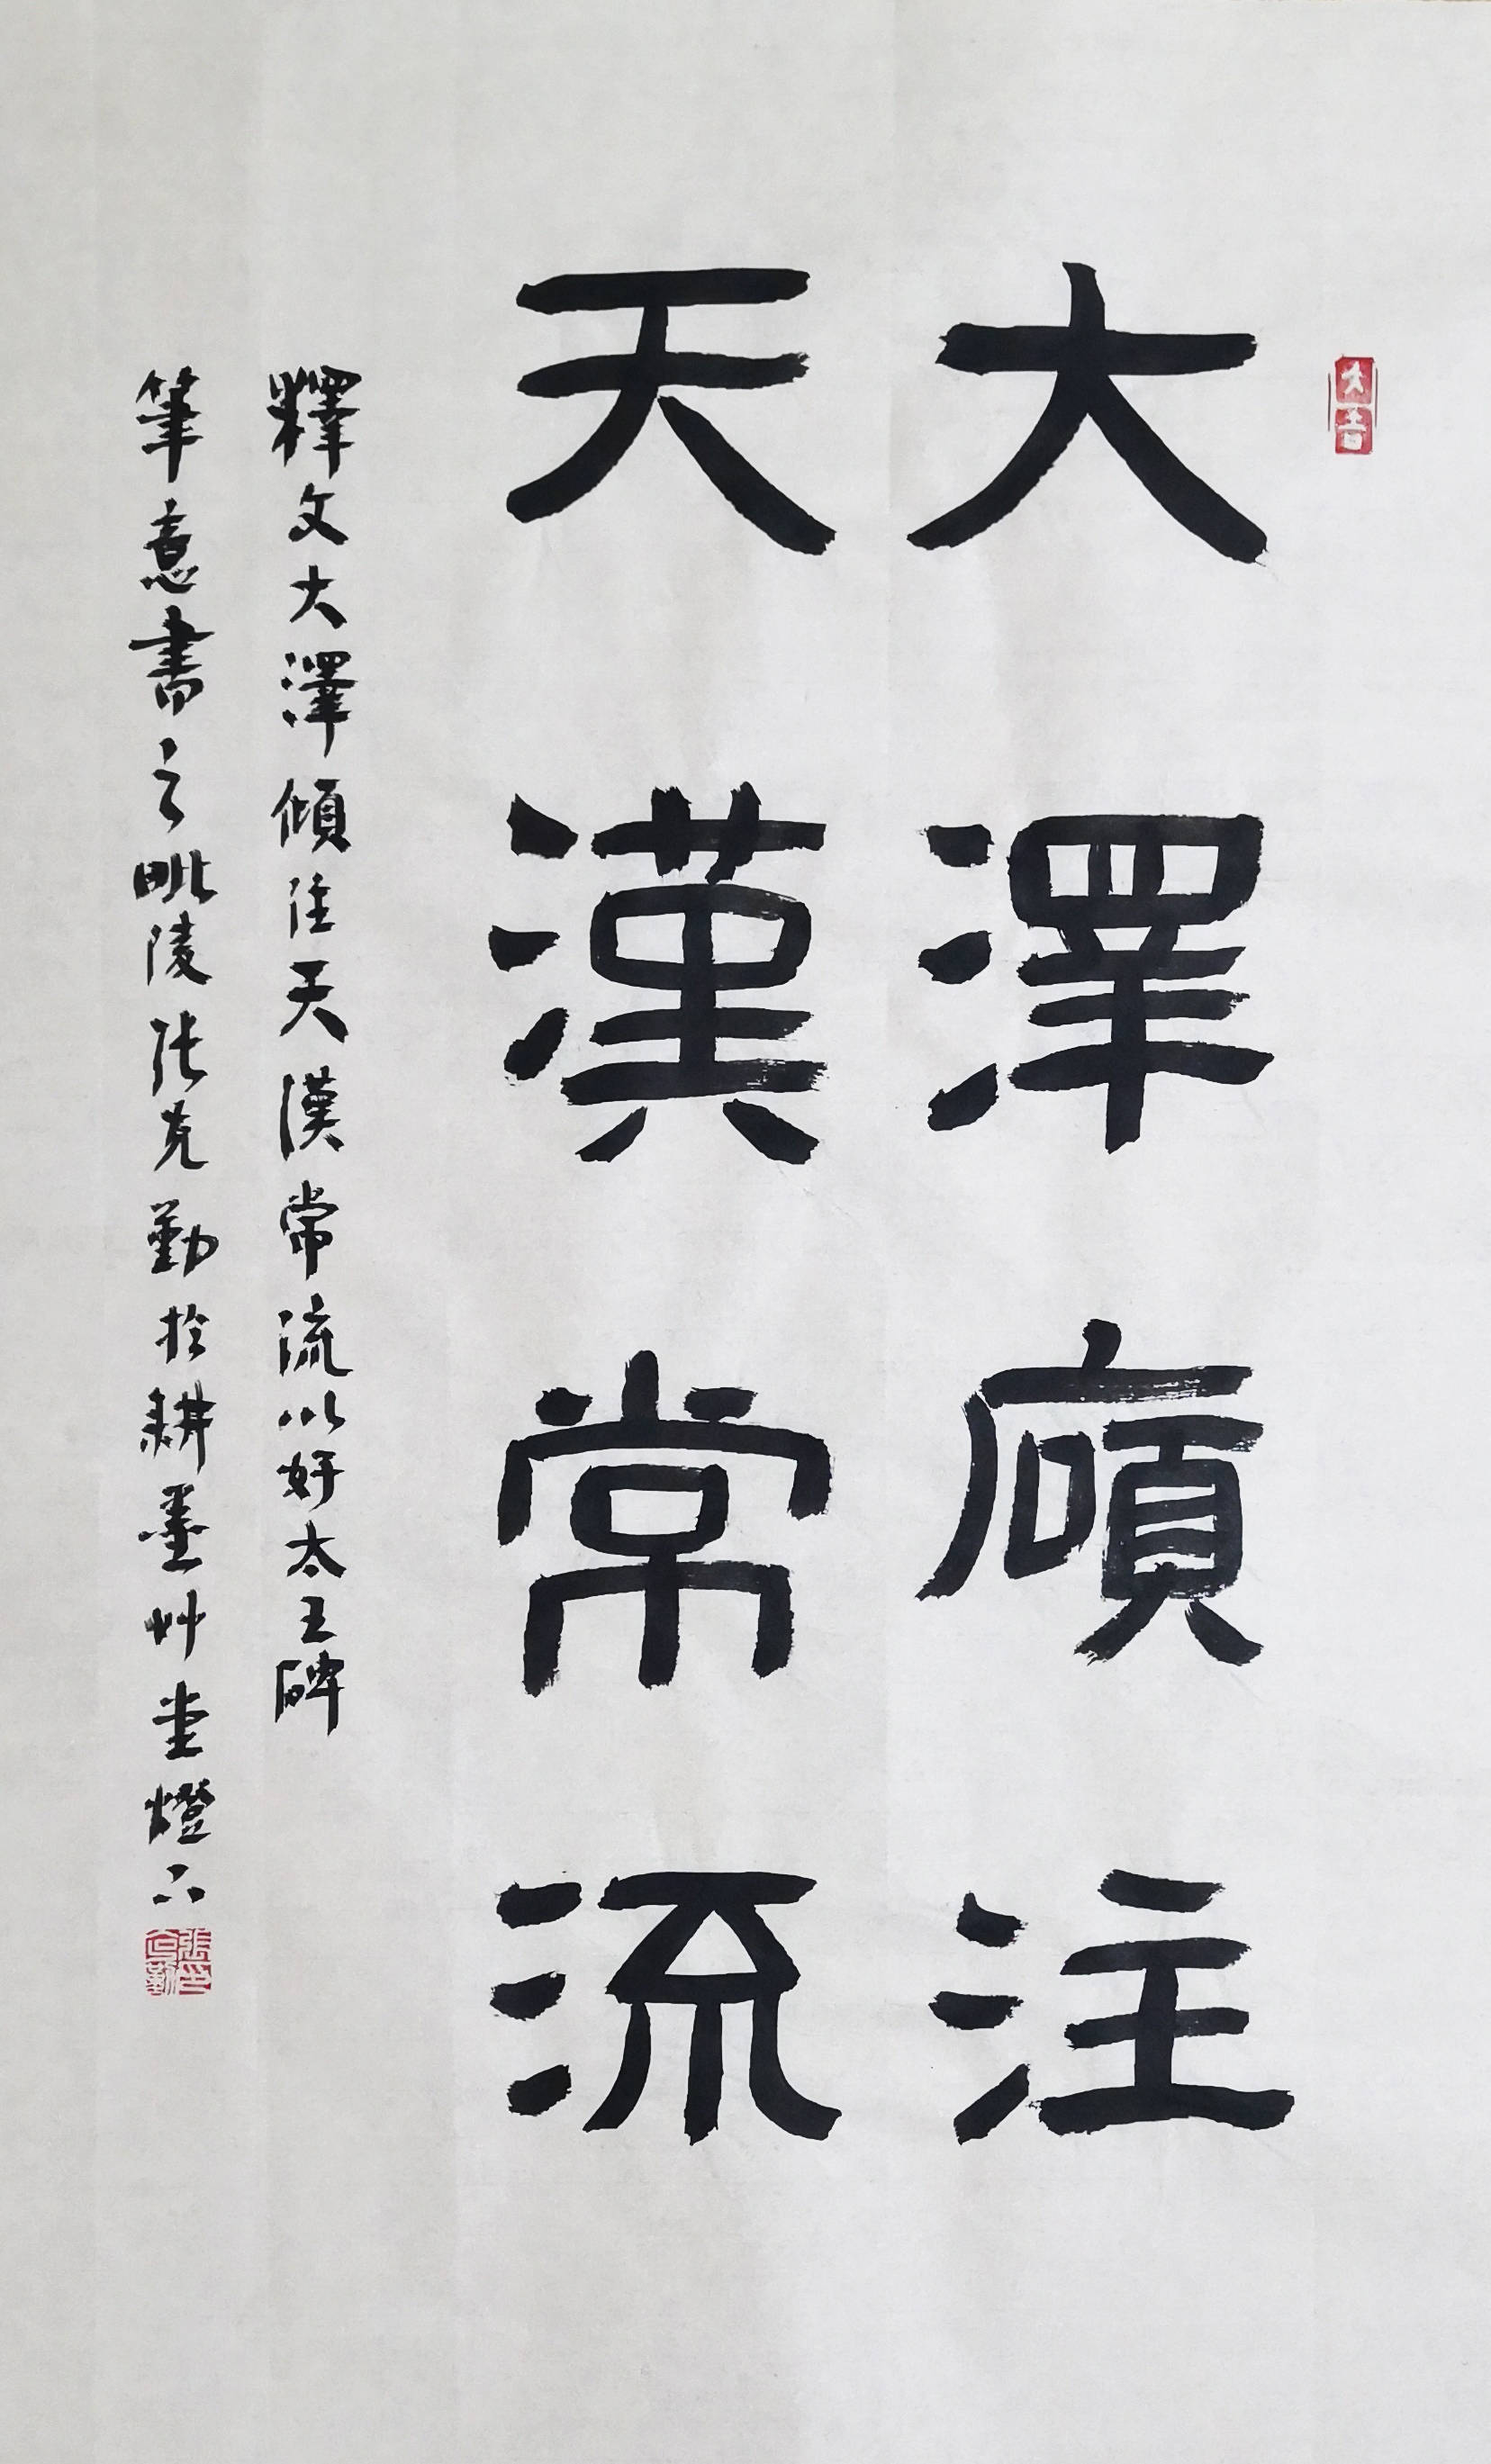 大吉
大澤廎注
天漢常流
釋文大澤傾注天漢常流以好太王碑
筆意書之毗陵張克勤於耕墨艸堂燈下
張克勤印